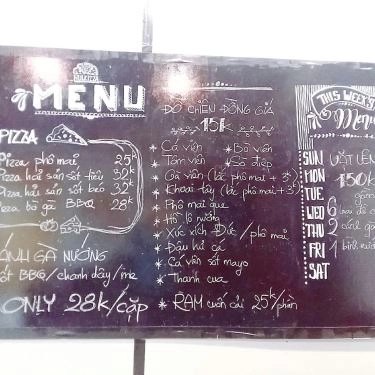 MENU
PIZZA
Pizza phô mai 25k
Pizza hải sản sốt tiêu 32k
Pizza hải sản sốt béo 32k
Pizza bò gà BBQ 28k
CÁNH GÀ NƯỚNG
sốt BBQ / chanh dây / me
ONLY 28k/cặp
ĐỒ CHIÊN ĐỒNG GIÁ
15k
* Cá viên * Bò viên
* Tôm viên * Sò điệp
* Gà viên (lắc phô mai + 3k)
* Khoai tây (lắc phô mai + 3k)
* Phô mai que
* Hồ lô nướng
* Xúc xích Đức / phô mai
* Đậu hủ cá
* Cá viên sốt mayo
* Thanh cua
* RAM cuốn cải 25k/phần
THIS WEEK'S
Menu
SUN
MON
TUE
WED
THU
FRI
SAT
VIỆT LÊN
150k
gồm
6
2
1